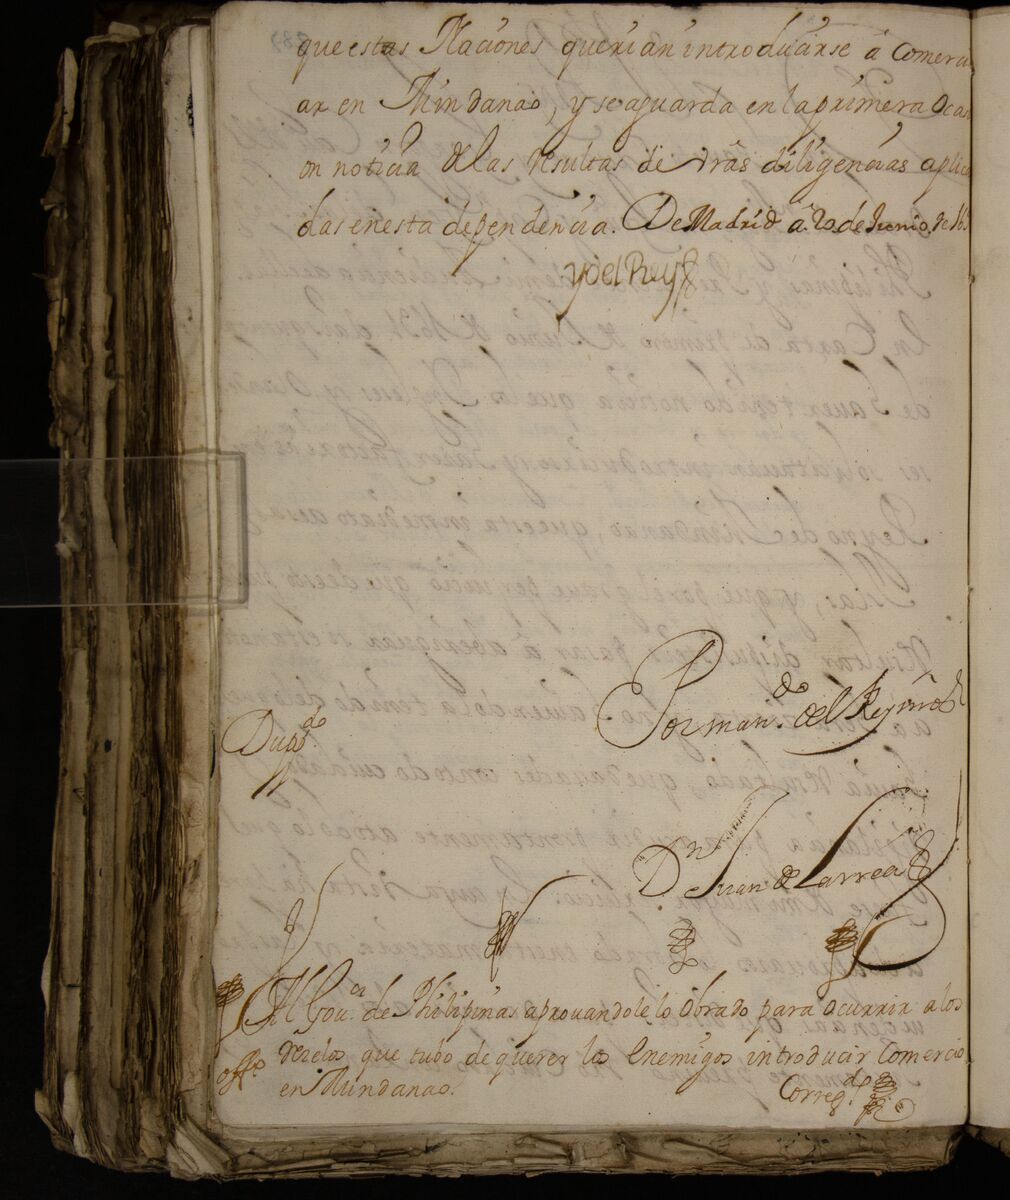 que estas Naciones querian introducirse á Comerci
ar en Mindanao, y se aguarda en la primera Ocasi
on noticia de las resultas de vrãs diligencias aplica
das en esta dependencia. De Madrid á 20 de Junio de
yo el Rey
Por mandº. del Rey nrõ sr
Dupdo
Dn Juan de Larrea
Al Gour. de Philipinas aprouandole lo obrado para ocurrir a los
rezelos, que tubo de querer los Enemigos introducir Comercio
offo
en Mindanao.
Corregda